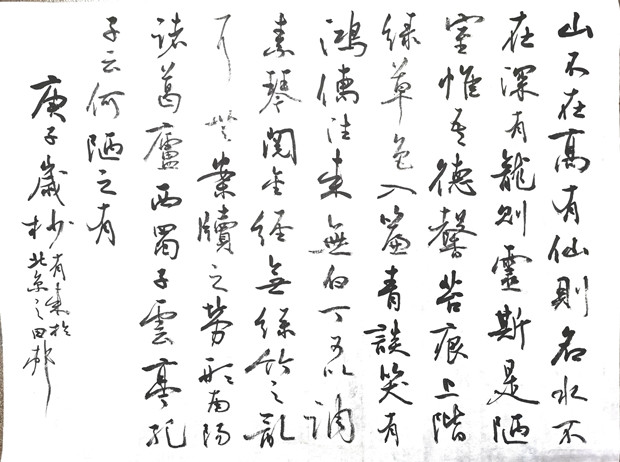 山不在高有仙則名水不
在深有龍則靈斯是陋
室惟吾德馨苔痕上階
綠草色入簾青談笑有
鴻儒往來無白丁可以調
素琴閱金經無絲竹之亂
耳無案牘之勞形南陽
諸葛廬西蜀子雲亭孔
子云何陋之有
庚子歲杪
有於
北京之田邨